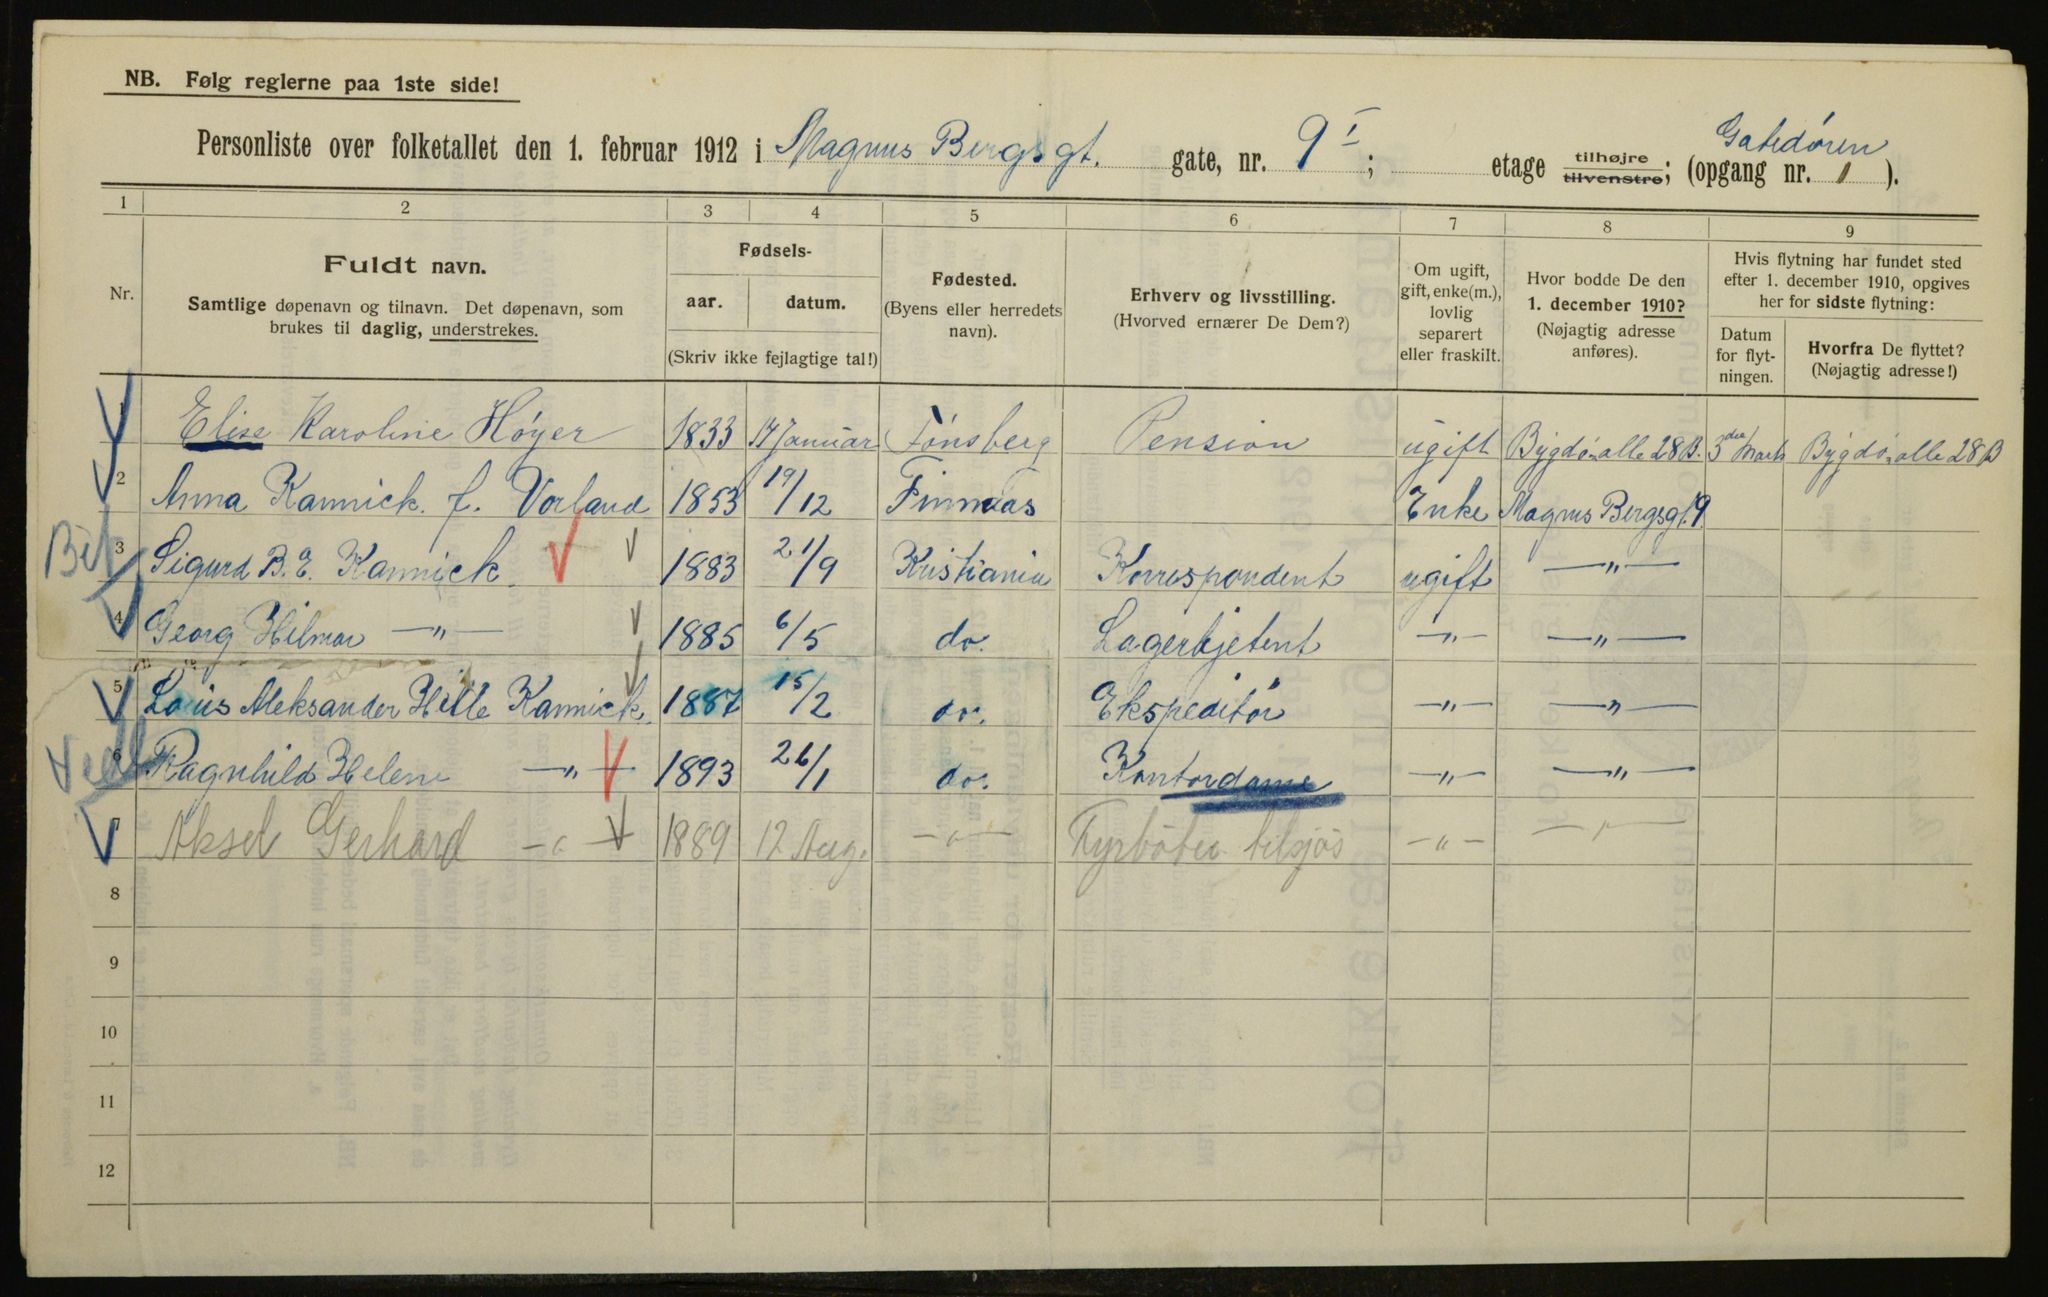 NB. Følg reglerne paa 1ste side!
Personliste over folketallet den 1. februar 1912 i Magnus Bergsgt. gate, nr. 9 I; etage tilhøjre tilvenstre; (opgang nr. 1). Gatedøren
1 2 3 4 5 6 7 8 9
Nr.
Fuldt navn.
Samtlige døpenavn og tilnavn. Det døpenavn, som
brukes til daglig, understrekes.
Fødsels-
aar. datum.
(Skriv ikke fejlagtige tal!)
Fødested.
(Byens eller herredets
navn).
Erhverv og livsstilling.
(Hvorved ernærer De Dem?)
Om ugift,
gift, enke(m.),
lovlig
separert
eller fraskilt.
Hvor bodde De den
1. december 1910?
(Nøjagtig adresse
anføres).
Hvis flytning har fundet sted
efter 1. december 1910, opgives
her for sidste flytning:
Datum
for flyt-
ningen.
Hvorfra De flyttet?
(Nøjagtig adresse!)
1 Elise Karoline Høyer 1833 17 Januar Tønsberg Pension ugift Bygdø alle 28 B. 3die Marts Bygdø alle 28 B
2 Anna Kannick. f. Vorland 1853 19/12 Finnaas Enke Magnus Bergsgt. 9.
3 Sigurd B. E. Kannick 1883 21/9 Kristiania Korrespondent ugift —"—
4 Georg Hilmar —"— 1885 6/5 do. Lagerbetjent —"— —"—
5 Louis Aleksander Hille Kannick. 1887 15/2 do. Ekspeditør —"— —"—
6 Ragnhild Helene —"— 1893 26/1 do. Kontordame —"— —"—
7 Aksel Gerhard —"— 1889 12 Aug. —"— Fyrbøter tilsjøs —"— —"—
8
9
10
11
12